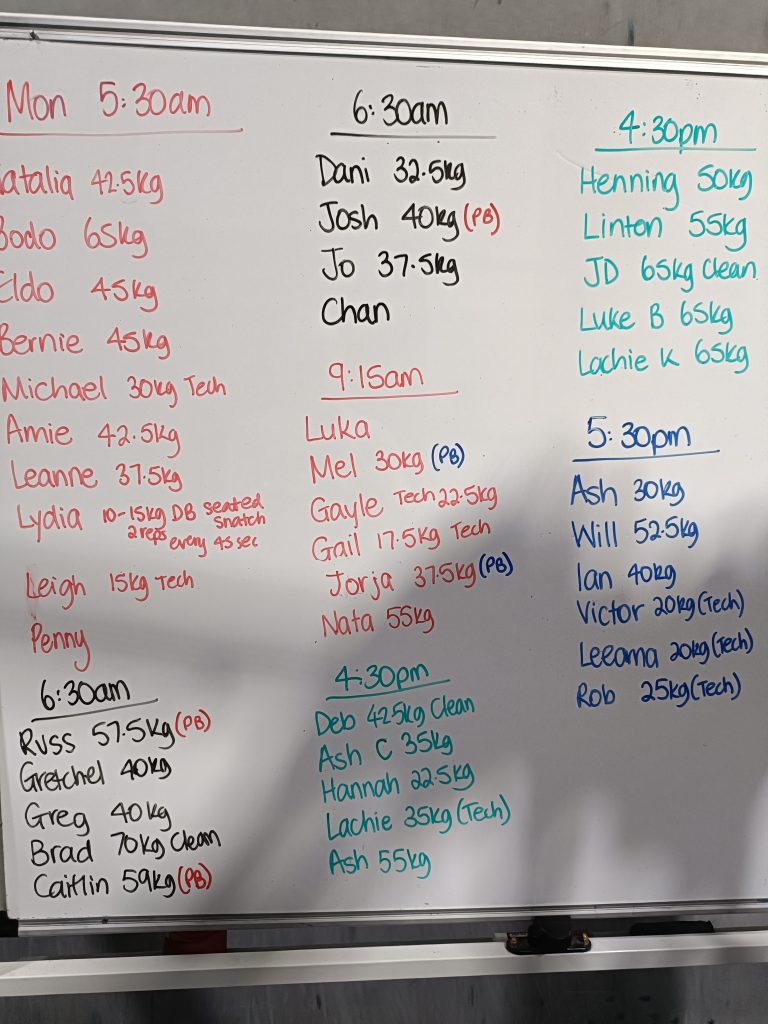 Mon 5:30am
atalia 42.5kg
Bodo 65kg
Eldo 45kg
Bernie 45kg
Michael 30kg Tech
Amie 42.5kg
Leanne 37.5kg
Lydia 10-15kg DB seated snatch
2 reps every 45 sec
Leigh 15kg Tech
Penny
6:30am
Russ 57.5kg (PB)
Gretchel 40kg
Greg 40kg
Brad 70kg Clean
Caitlin 59kg (PB)
6:30am
Dani 32.5kg
Josh 40kg (PB)
Jo 37.5kg
Chan
9:15am
Luka
Mel 30kg (PB)
Gayle Tech 22.5kg
Gail 17.5kg Tech
Jorja 37.5kg (PB)
Nata 55kg
4:30pm
Deb 42.5kg Clean
Ash C 35kg
Hannah 22.5kg
Lachie 35kg (Tech)
Ash 55kg
4:30pm
Henning 50kg
Linton 55kg
JD 65kg Clean
Luke B 65kg
Lachie K 65kg
5:30pm
Ash 30kg
Will 52.5kg
Ian 40kg
Victor 20kg (Tech)
Leeama 20kg (Tech)
Rob 25kg (Tech)